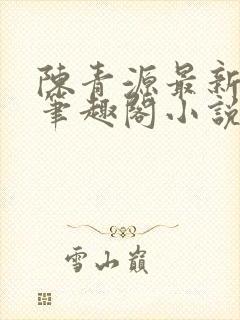 陳青源最新
筆趣閣小說
雪山巔